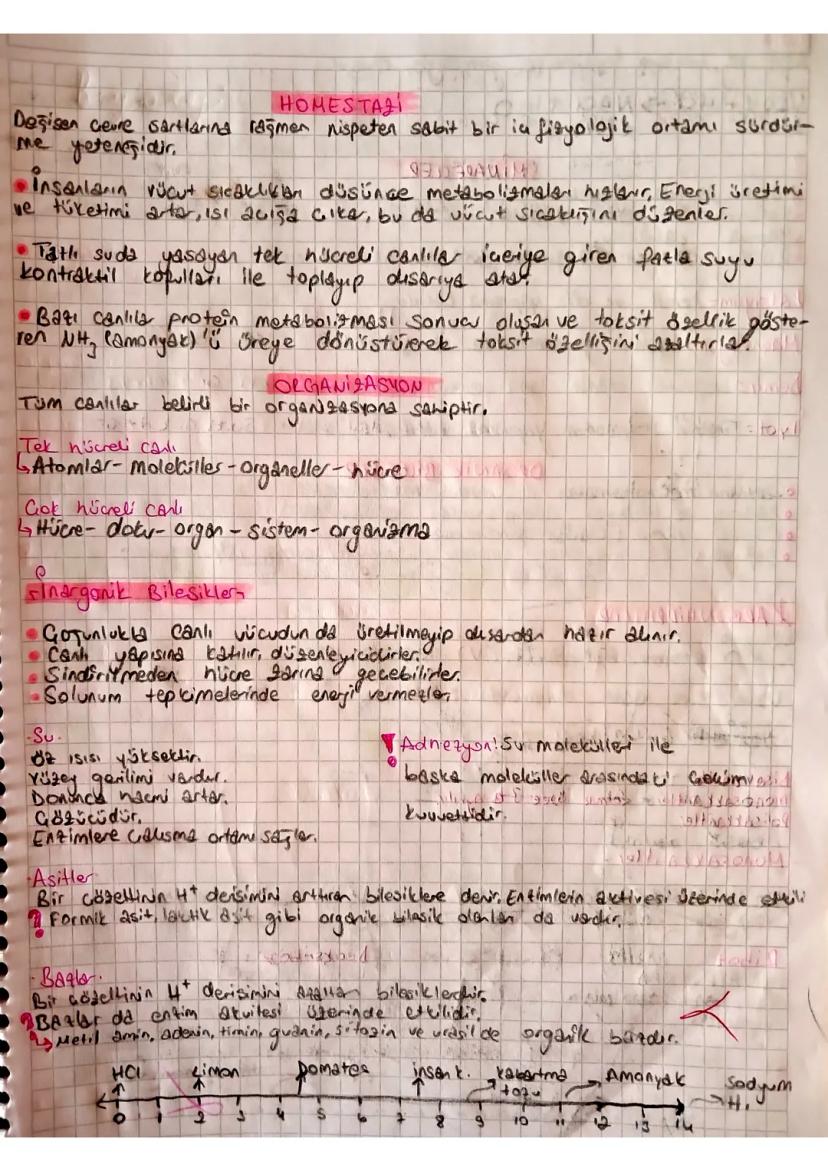 HOMESTAZİ
Değişen çevre şartlarına rağmen nispeten sabit bir iç fizyolojik ortamı sürdür-
me yeteneğidir.
• İnsanların vücut sıcaklıkları düşünce metabolizmaları hızlanır, Enerji üretimi
ve tüketimi artar, ısı açığa çıkar, bu da vücut sıcaklığını düzenler.
• Tatlı suda yaşayan tek hücreli canlılar içeriye giren fazla suyu
kontraktil kofulları ile toplayıp dışarıya atar.
• Bazı canlılar protein metabolizması sonucu oluşan ve toksit özellik göste-
ren NH3 (amonyak)'ü üreye dönüştürerek toksit özelliğini azaltırlar.
ORGANİZASYON
Tüm canlılar belirli bir organizasyona sahiptir.
Tek hücreli canlı
↳ Atomlar - moleküller - organeller - hücre
Çok hücreli canlı
↳ Hücre - doku - organ - sistem - organizma
İnorganik Bileşikler
• Çoğunlukla canlı vücudunda üretilmeyip dışardan hazır alınır.
• Canlı yapısına katılır, düzenleyicidirler.
• Sindirilmeden hücre zarına geçebilirler.
• Solunum tepkimelerinde enerji vermezler.
- Su -
Öz ısısı yüksektir.
Yüzey gerilimi vardır.
Donunca hacmi artar.
Çözücüdür.
Enzimlere çalışma ortamı sağlar.
! Adhezyon: Su molekülleri ile
başka moleküller arasındaki çekim
kuvvetidir.
- Asitler
Bir çözeltinin H+ derişimini arttıran bileşiklere denir. Enzimlerin aktivesi üzerinde etkili
? Formik asit, laktik asit gibi organik bileşik olanları da vardır.
- Bazlar -
Bir çözeltinin H+ derişimini azaltan bileşiklerdir.
? Bazlar da enzim akvitesi üzerinde etkilidir.
↳ Metil amin, adenin, timin, guanin, sitozin ve urasil de organik bazdır.
HCl Limon Domates İnsan k. Kabartma tozu Amonyak Sodyum H.
0 1 2 3 4 5 6 7 8 9 10 11 12 13 14